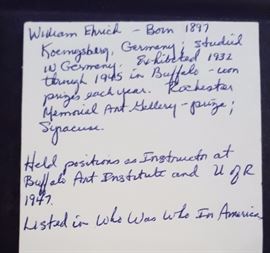 William Ehrich - Born 1897
Koenigsberg, Germany; studied
in Germany. Exhibited 1932
through 1945 in Buffalo - won
prizes each year. Rochester
Memorial Art Gallery - prize;
Syracuse.
Held positions as Instructor at
Buffalo Art Institute and U of R
1947.
Listed in Who Was Who In America